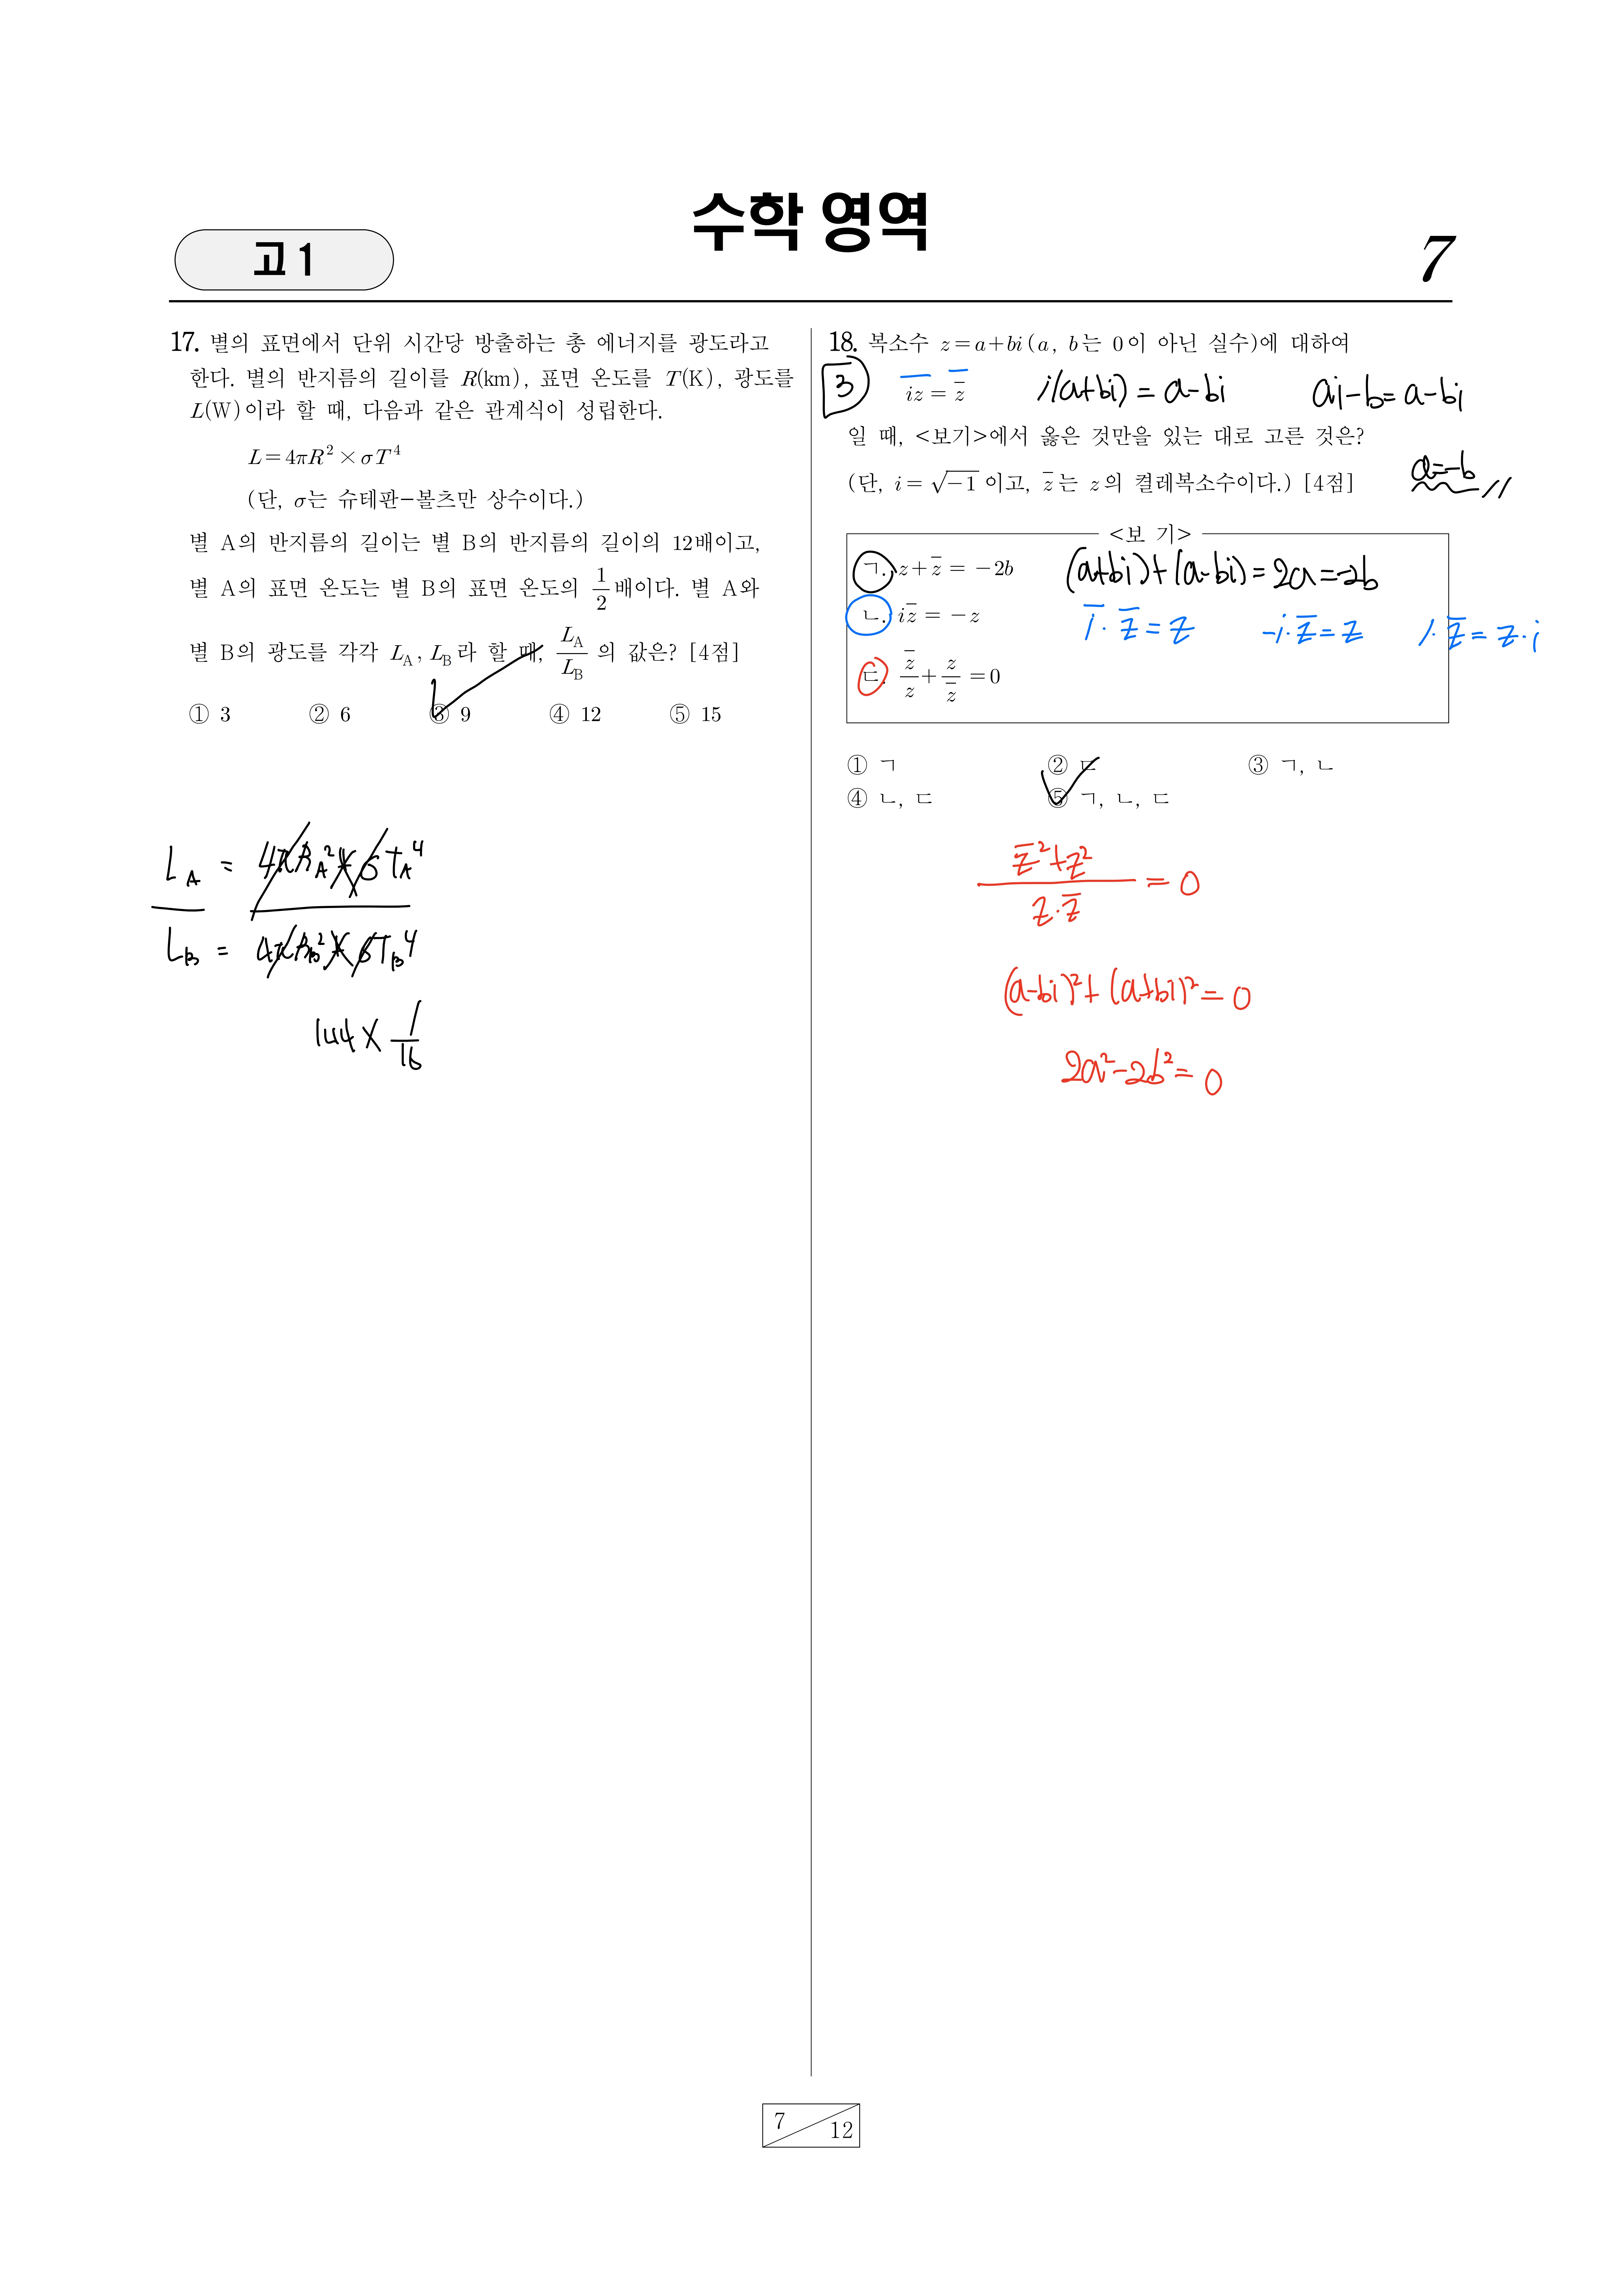 수학 영역
고 1
7
17. 별의 표면에서 단위 시간당 방출하는 총 에너지를 광도라고
한다. 별의 반지름의 길이를 R(km), 표면 온도를 T(K), 광도를
L(W)이라 할 때, 다음과 같은 관계식이 성립한다.
L=4πR²×σT⁴
(단, σ는 슈테판-볼츠만 상수이다.)
별 A의 반지름의 길이는 별 B의 반지름의 길이의 12배이고,
별 A의 표면 온도는 별 B의 표면 온도의 1/2배이다. 별 A와
별 B의 광도를 각각 L_A, L_B라 할 때, L_A/L_B의 값은? [4점]
① 3 ② 6 ③ 9 ④ 12 ⑤ 15
L_A = 4πR_A²×σT_A⁴
L_B = 4πR_B²×σT_B⁴
144×1/16
18. 복소수 z=a+bi(a, b는 0이 아닌 실수)에 대하여
3
iz = z̄ i(a+bi) = a-bi ai-b=a-bi
일 때, <보기>에서 옳은 것만을 있는 대로 고른 것은?
a=-b
(단, i=√-1이고, z̄는 z의 켤레복소수이다.) [4점]
<보 기>
ㄱ. z+z̄ = -2b (a+bi)+(a-bi)=2a=-2b
ㄴ. iz̄ = -z ī·z̄=z -i·z̄=z 1·z̄=z·i
ㄷ. z̄/z + z/z̄ = 0
① ㄱ ② ㄷ ③ ㄱ, ㄴ
④ ㄴ, ㄷ ⑤ ㄱ, ㄴ, ㄷ
(z̄²+z²)/(z·z̄) = 0
(a-bi)²+(a+bi)²=0
2a²-2b²=0
7
12